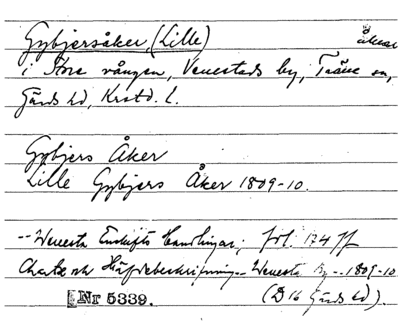 Gybjersåker, (Lille) åkrar
i Stora vången, Venestads by, Träne sn,
Gärds hd, Krstd. l.
Gybjers Åker
Lille Gybjers Åker 1809-10.
-- Wenesta Enskifts Handlingar; fol. 174 ff
Charta och Häfdebeskrifning -- Wenesta By -- 1809-10
Nr 5339. (D 16 Gärds hd).